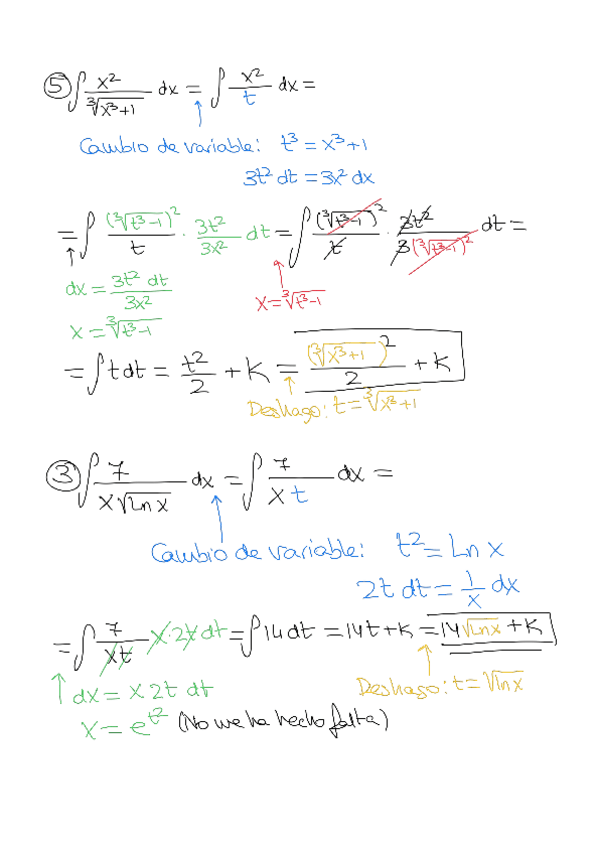 ⑤ ∫ x² / ∛(x³+1) dx = ∫ x²/t dx =
Cambio de variable: t³ = x³+1
3t² dt = 3x² dx
= ∫ (∛(t³-1))² / t · 3t²/3x² dt = ∫ (∛(t³-1))² / t · 3t² / 3(∛(t³-1))² dt =
dx = 3t² dt / 3x²
x = ∛(t³-1)
x = ∛(t³-1)
= ∫ t dt = t²/2 + K = (∛(x³+1))² / 2 + K
Deshago: t = ∛(x³+1)
③ ∫ 7 / x√Ln x dx = ∫ 7 / x t dx =
Cambio de variable: t² = Ln x
2t dt = 1/x dx
= ∫ 7 / xt x·2t dt = ∫ 14 dt = 14t + K = 14√Ln x + K
dx = x 2t dt
Deshago: t = √ln x
x = e^t² (No me ha hecho falta)